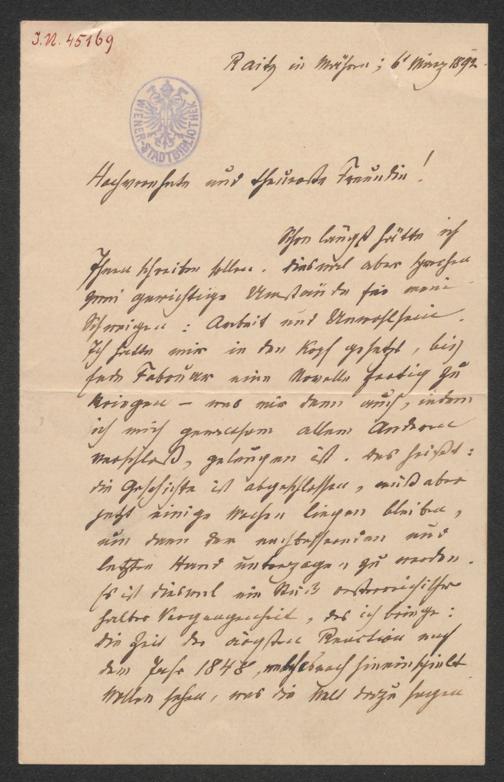 I.N. 45169
WIENER-STADTBIBLIOTHEK
Raitz in Mähren; 6 März 1892.
Hochverehrte und theuerste Freundin!
Schon längst hätte ich
Ihnen schreiben sollen. Diesmal aber sprechen
zwei gewichtige Umstände für mein
Schweigen: Arbeit und Unwohlsein.
Ich hatte mir in den Kopf gesetzt, bis
Ende Februar eine Novelle fertig zu
kriegen – was mir denn auch, indem
ich mich gewaltsam allem Anderen
verschloß, gelungen ist. Das heißt:
die Geschichte ist abgeschlossen, muß aber
jetzt einige Wochen liegen bleiben,
um dann der nachbessernden und
letzten Hand unterzogen zu werden.
Es ist diesmal ein Stück österreichischer
Vergangenheit, das ich bringe:
die Zeit der ärgsten Reaction nach
dem Jahr 1848, hineinspielt
Wollen sehen, was die Welt dazu sagen